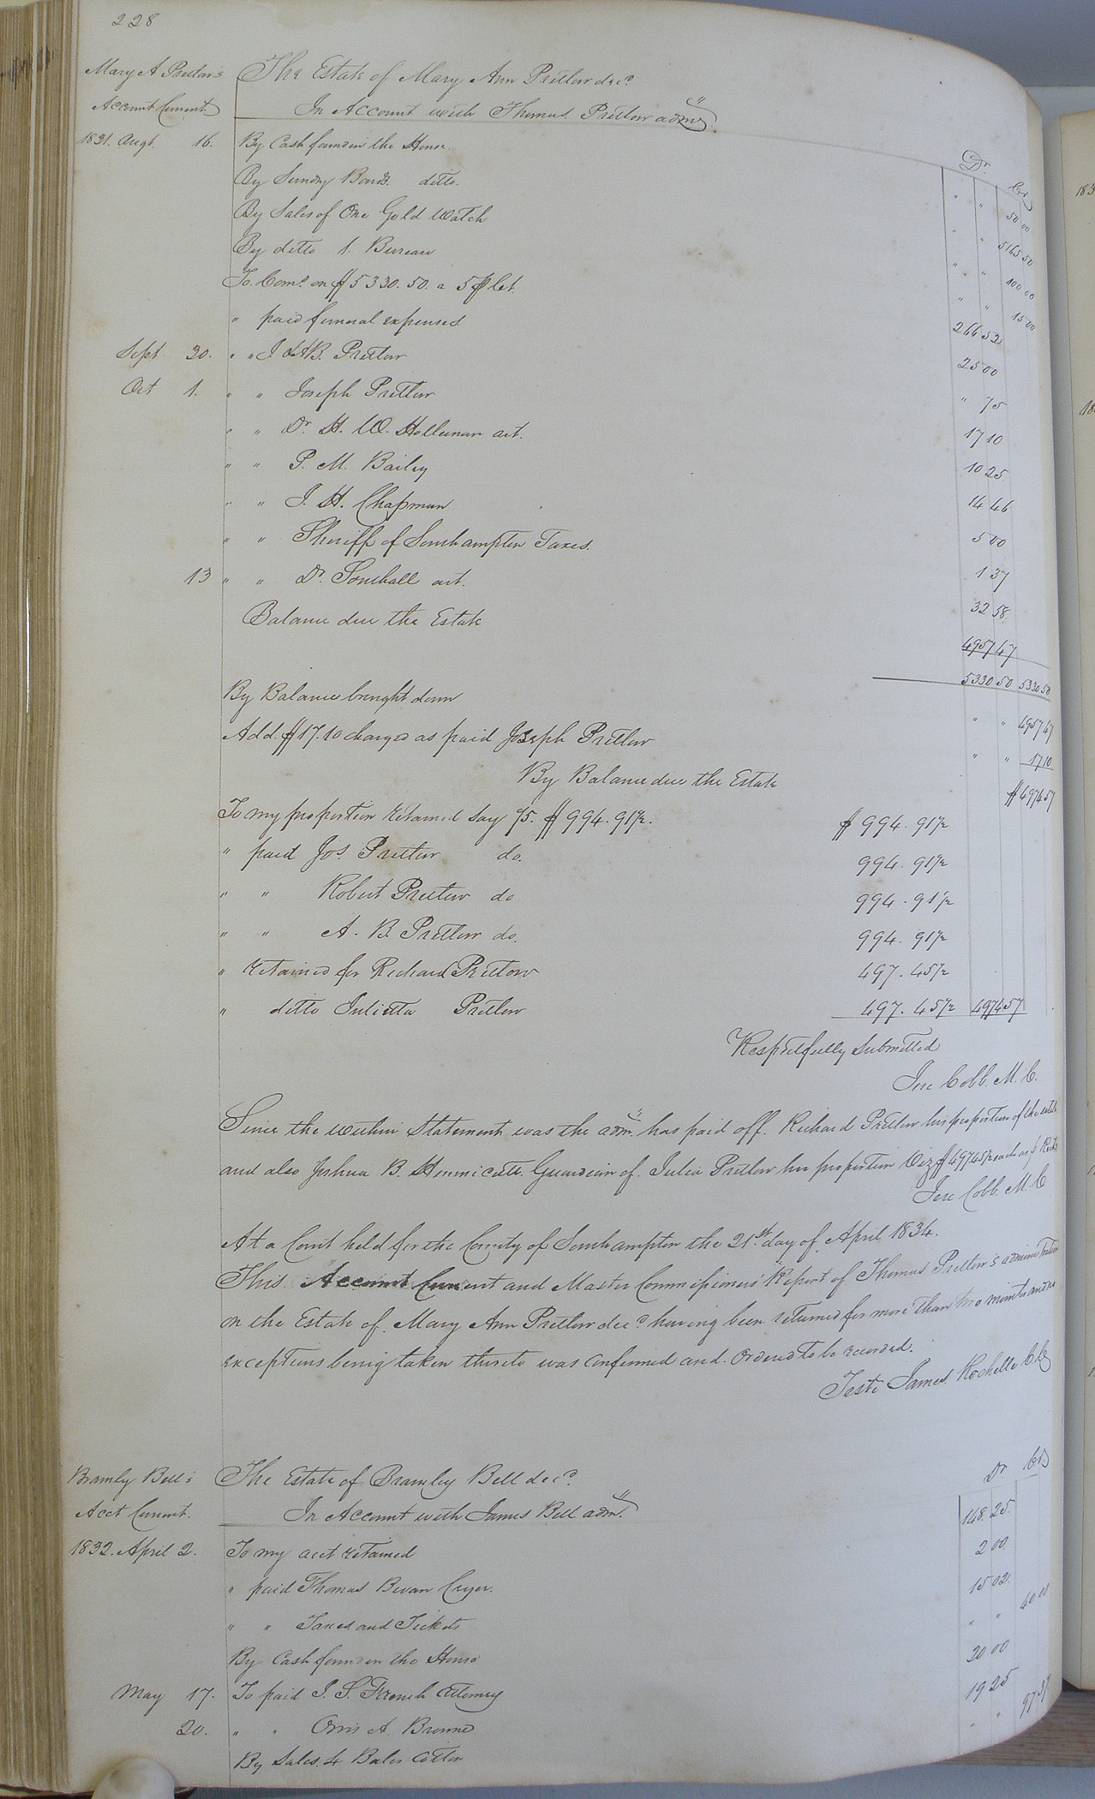 228
Mary A Pretlow's The Estate of Mary Ann Pretlow decd
Account Current In Account with Thomas Pretlow admr
Dr Cr
1831. Augt. 16. By Cash found in the House " " 50 00
By Sundry Bonds ditto. " " 5165 50
By Sales of One Gold Watch " " 100 00
By ditto 1. Bureau " " 15 00
To Comn. on $5330.50 a 5 pr Ct. 266 52
" paid funeral expenses 25 00
Sept 20. " " J & A B. Pretlow " 75
Oct 1. " " Joseph Pretlow 17 10
" " Dr. H. W. Holleman act. 10 25
" " P. M. Bailey 14 46
" " J. H. Chapman 5 00
" " Sheriff of Southampton Taxes. 1 37
13 " " Dr. Southall act. 32 58
Balance due the Estate 4957 47
5330 50 5330 50
By Balance brought down " " 4957 47
Add $17.10 charged as paid Joseph Pretlow " " 17 10
By Balance due the Estate $4974 57
To my proportion retained Say 1/5. $994.91 1/2. $994.91 1/2
" paid Jos Pretlow do. 994.91 1/2
" " Robert Pretlow do 994.91 1/2
" " A. B. Pretlow do. 994.91 1/2
" retained for Richard Pretlow 497.45 1/2
" ditto Julietta Pretlow 497.45 1/2 4974 57
Respectfully Submitted
Jere Cobb. M. C.
Since the within Statement was the admr. has paid off. Richard Pretlow his proportion of the estate
and also Joshua B. Hunnicutt Guardian of Julia Pretlow her proportion Viz $497.45 1/2 each as p Rects
Jere Cobb. M. C
At a Court held for the County of Southampton the 21st day of April 1834.
This Account Current and Master Commissioners Report of Thomas Pretlow's administration
on the Estate of Mary Ann Pretlow decd having been returned for more than two months and no
exceptions being taken thereto was confirmed and Ordered to be recorded.
Teste James Rochelle C. C.
Bramly Bell's The Estate of Bramley Bell decd. Dr Cr
Acct Current. In Account with James Bell admr.
1832. April 2. To my acct retained 148. 25.
" paid Thomas Bevan Cryer. 2 00
" " Taxes and Tickets 15 02.
By Cash found in the House " " 40 00
May 17. To paid J. S. French Attorney 20 00
20. " " Orris A. Browne 19 25
By Sales. 4 Bales Cotton " " 97 37